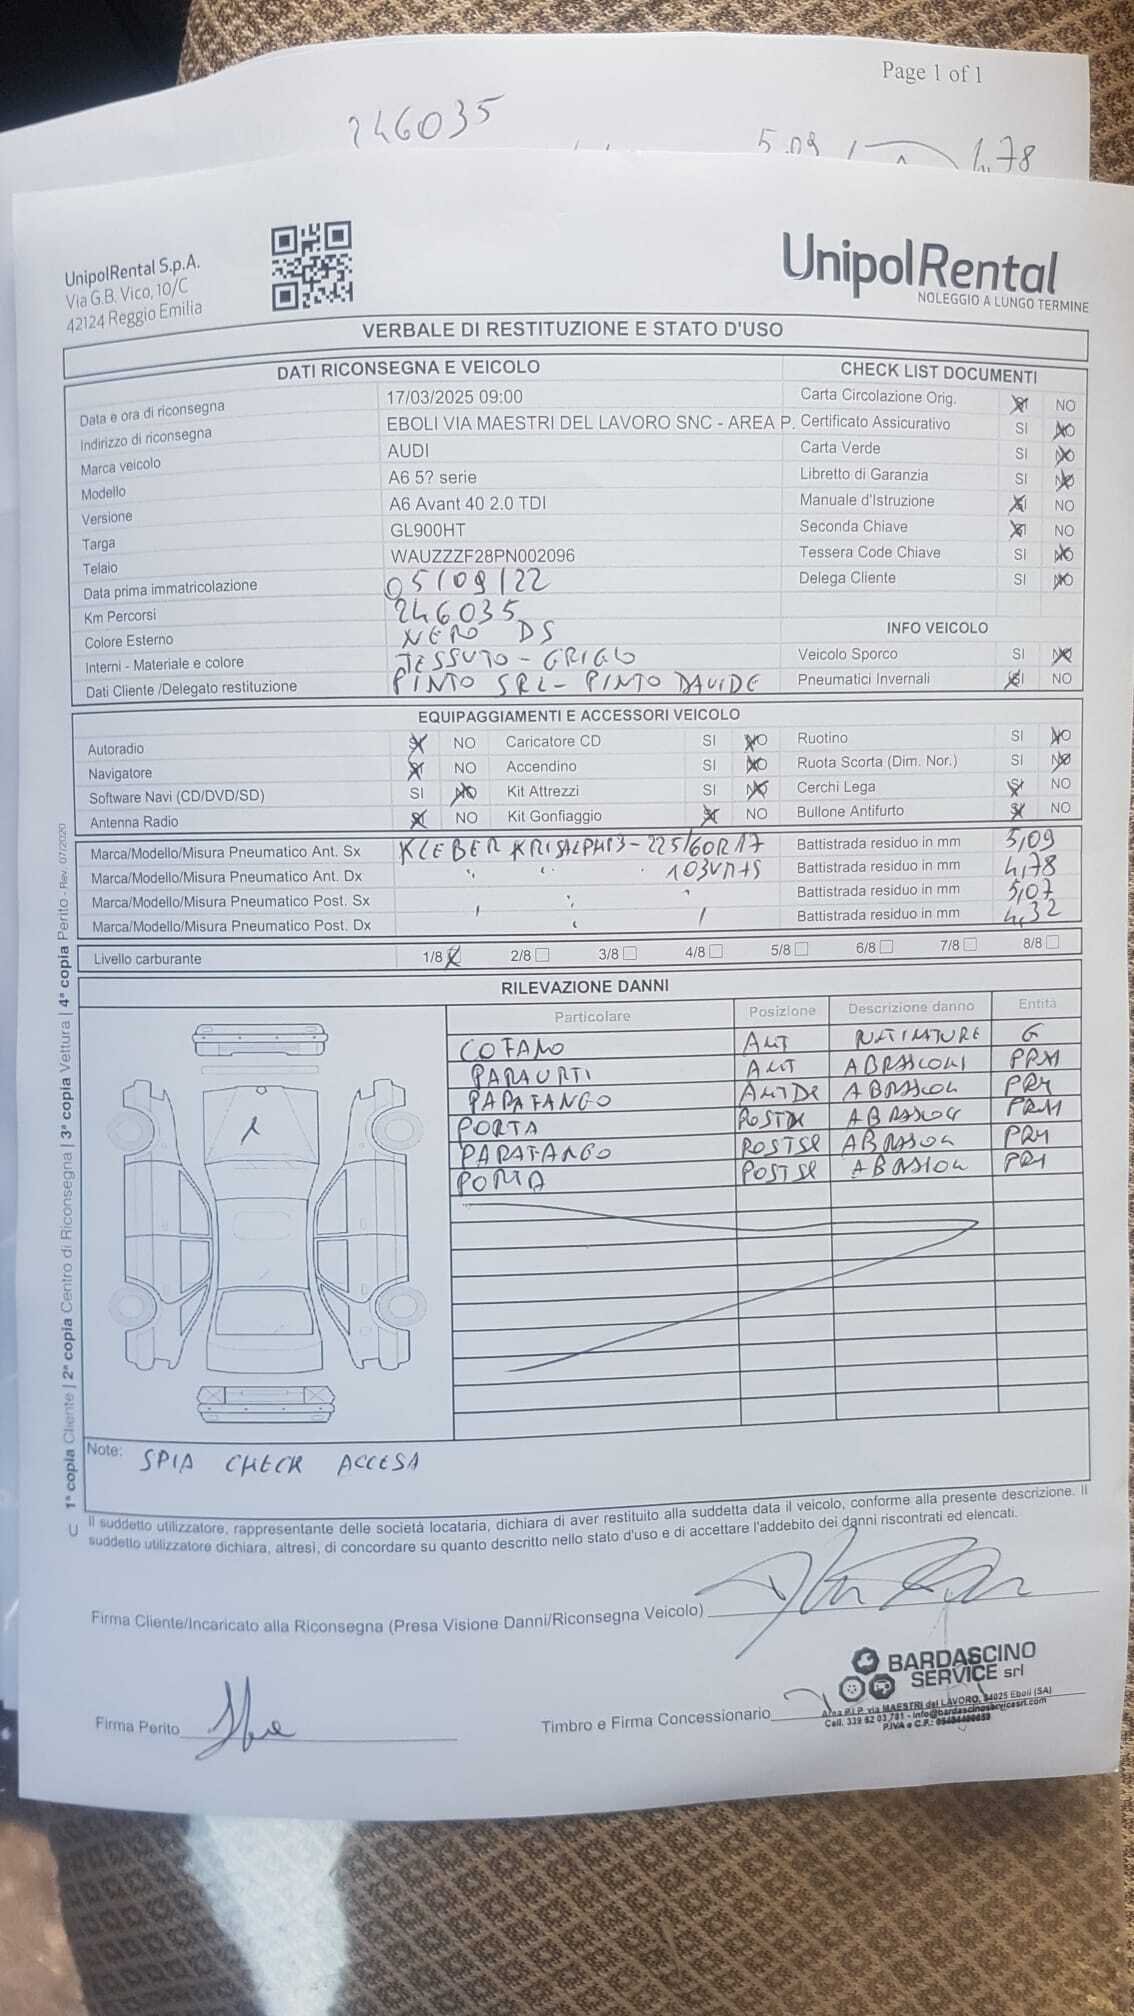 Page 1 of 1
246035
5.09
4,78
UnipolRental S.p.A.
Via G.B. Vico, 10/C
42124 Reggio Emilia
UnipolRental
NOLEGGIO A LUNGO TERMINE
VERBALE DI RESTITUZIONE E STATO D'USO
DATI RICONSEGNA E VEICOLO
CHECK LIST DOCUMENTI
Data e ora di riconsegna 17/03/2025 09:00 Carta Circolazione Orig. SI NO
Indirizzo di riconsegna EBOLI VIA MAESTRI DEL LAVORO SNC - AREA P. Certificato Assicurativo SI NO
Marca veicolo AUDI Carta Verde SI NO
Modello A6 5? serie Libretto di Garanzia SI NO
Versione A6 Avant 40 2.0 TDI Manuale d'Istruzione SI NO
Targa GL900HT Seconda Chiave SI NO
Telaio WAUZZZF28PN002096 Tessera Code Chiave SI NO
Data prima immatricolazione 05/09/22 Delega Cliente SI NO
Km Percorsi 246035
Colore Esterno NERO DS INFO VEICOLO
Interni - Materiale e colore TESSUTO - GRIGIO Veicolo Sporco SI NO
Dati Cliente /Delegato restituzione PINTO SRL - PINTO DAVIDE Pneumatici Invernali SI NO
EQUIPAGGIAMENTI E ACCESSORI VEICOLO
Autoradio SI NO Caricatore CD SI NO Ruotino SI NO
Navigatore SI NO Accendino SI NO Ruota Scorta (Dim. Nor.) SI NO
Software Navi (CD/DVD/SD) SI NO Kit Attrezzi SI NO Cerchi Lega SI NO
Antenna Radio SI NO Kit Gonfiaggio SI NO Bullone Antifurto SI NO
Marca/Modello/Misura Pneumatico Ant. Sx KLEBER KRISALPHP3 - 225/60R17 Battistrada residuo in mm 5,09
Marca/Modello/Misura Pneumatico Ant. Dx " " " 103V M+S Battistrada residuo in mm 4,78
Marca/Modello/Misura Pneumatico Post. Sx Battistrada residuo in mm 5,07
Marca/Modello/Misura Pneumatico Post. Dx Battistrada residuo in mm 4,32
Livello carburante 1/8 2/8 3/8 4/8 5/8 6/8 7/8 8/8
RILEVAZIONE DANNI
Particolare Posizione Descrizione danno Entità
COFANO ANT G
PARAURTI ANT ABRASIONI PRM
PARAFANGO ANTDX ABRASION PRM
PORTA POSTDX ABRASION PRM
PARAFANGO POSTSX ABRASION PRM
PORTA POSTSX ABRASION PRM
Note: SPIA CHECK ACCESA
Il suddetto utilizzatore, rappresentante delle società locataria, dichiara di aver restituito alla suddetta data il veicolo, conforme alla presente descrizione. Il
suddetto utilizzatore dichiara, altresì, di concordare su quanto descritto nello stato d'uso e di accettare l'addebito dei danni riscontrati ed elencati.
Firma Cliente/Incaricato alla Riconsegna (Presa Visione Danni/Riconsegna Veicolo)
Firma Perito
Timbro e Firma Concessionario
BARDASCINO
SERVICE srl
Area P.I.P. via MAESTRI del LAVORO, 84025 Eboli (SA)
Cell. 339 62 03 781 - info@bardascinoservicesrl.com
P.IVA e C.F.:
1ª copia Cliente | 2ª copia Centro di Riconsegna | 3ª copia Vettura | 4ª copia Perito - Rev. 07/2020
U